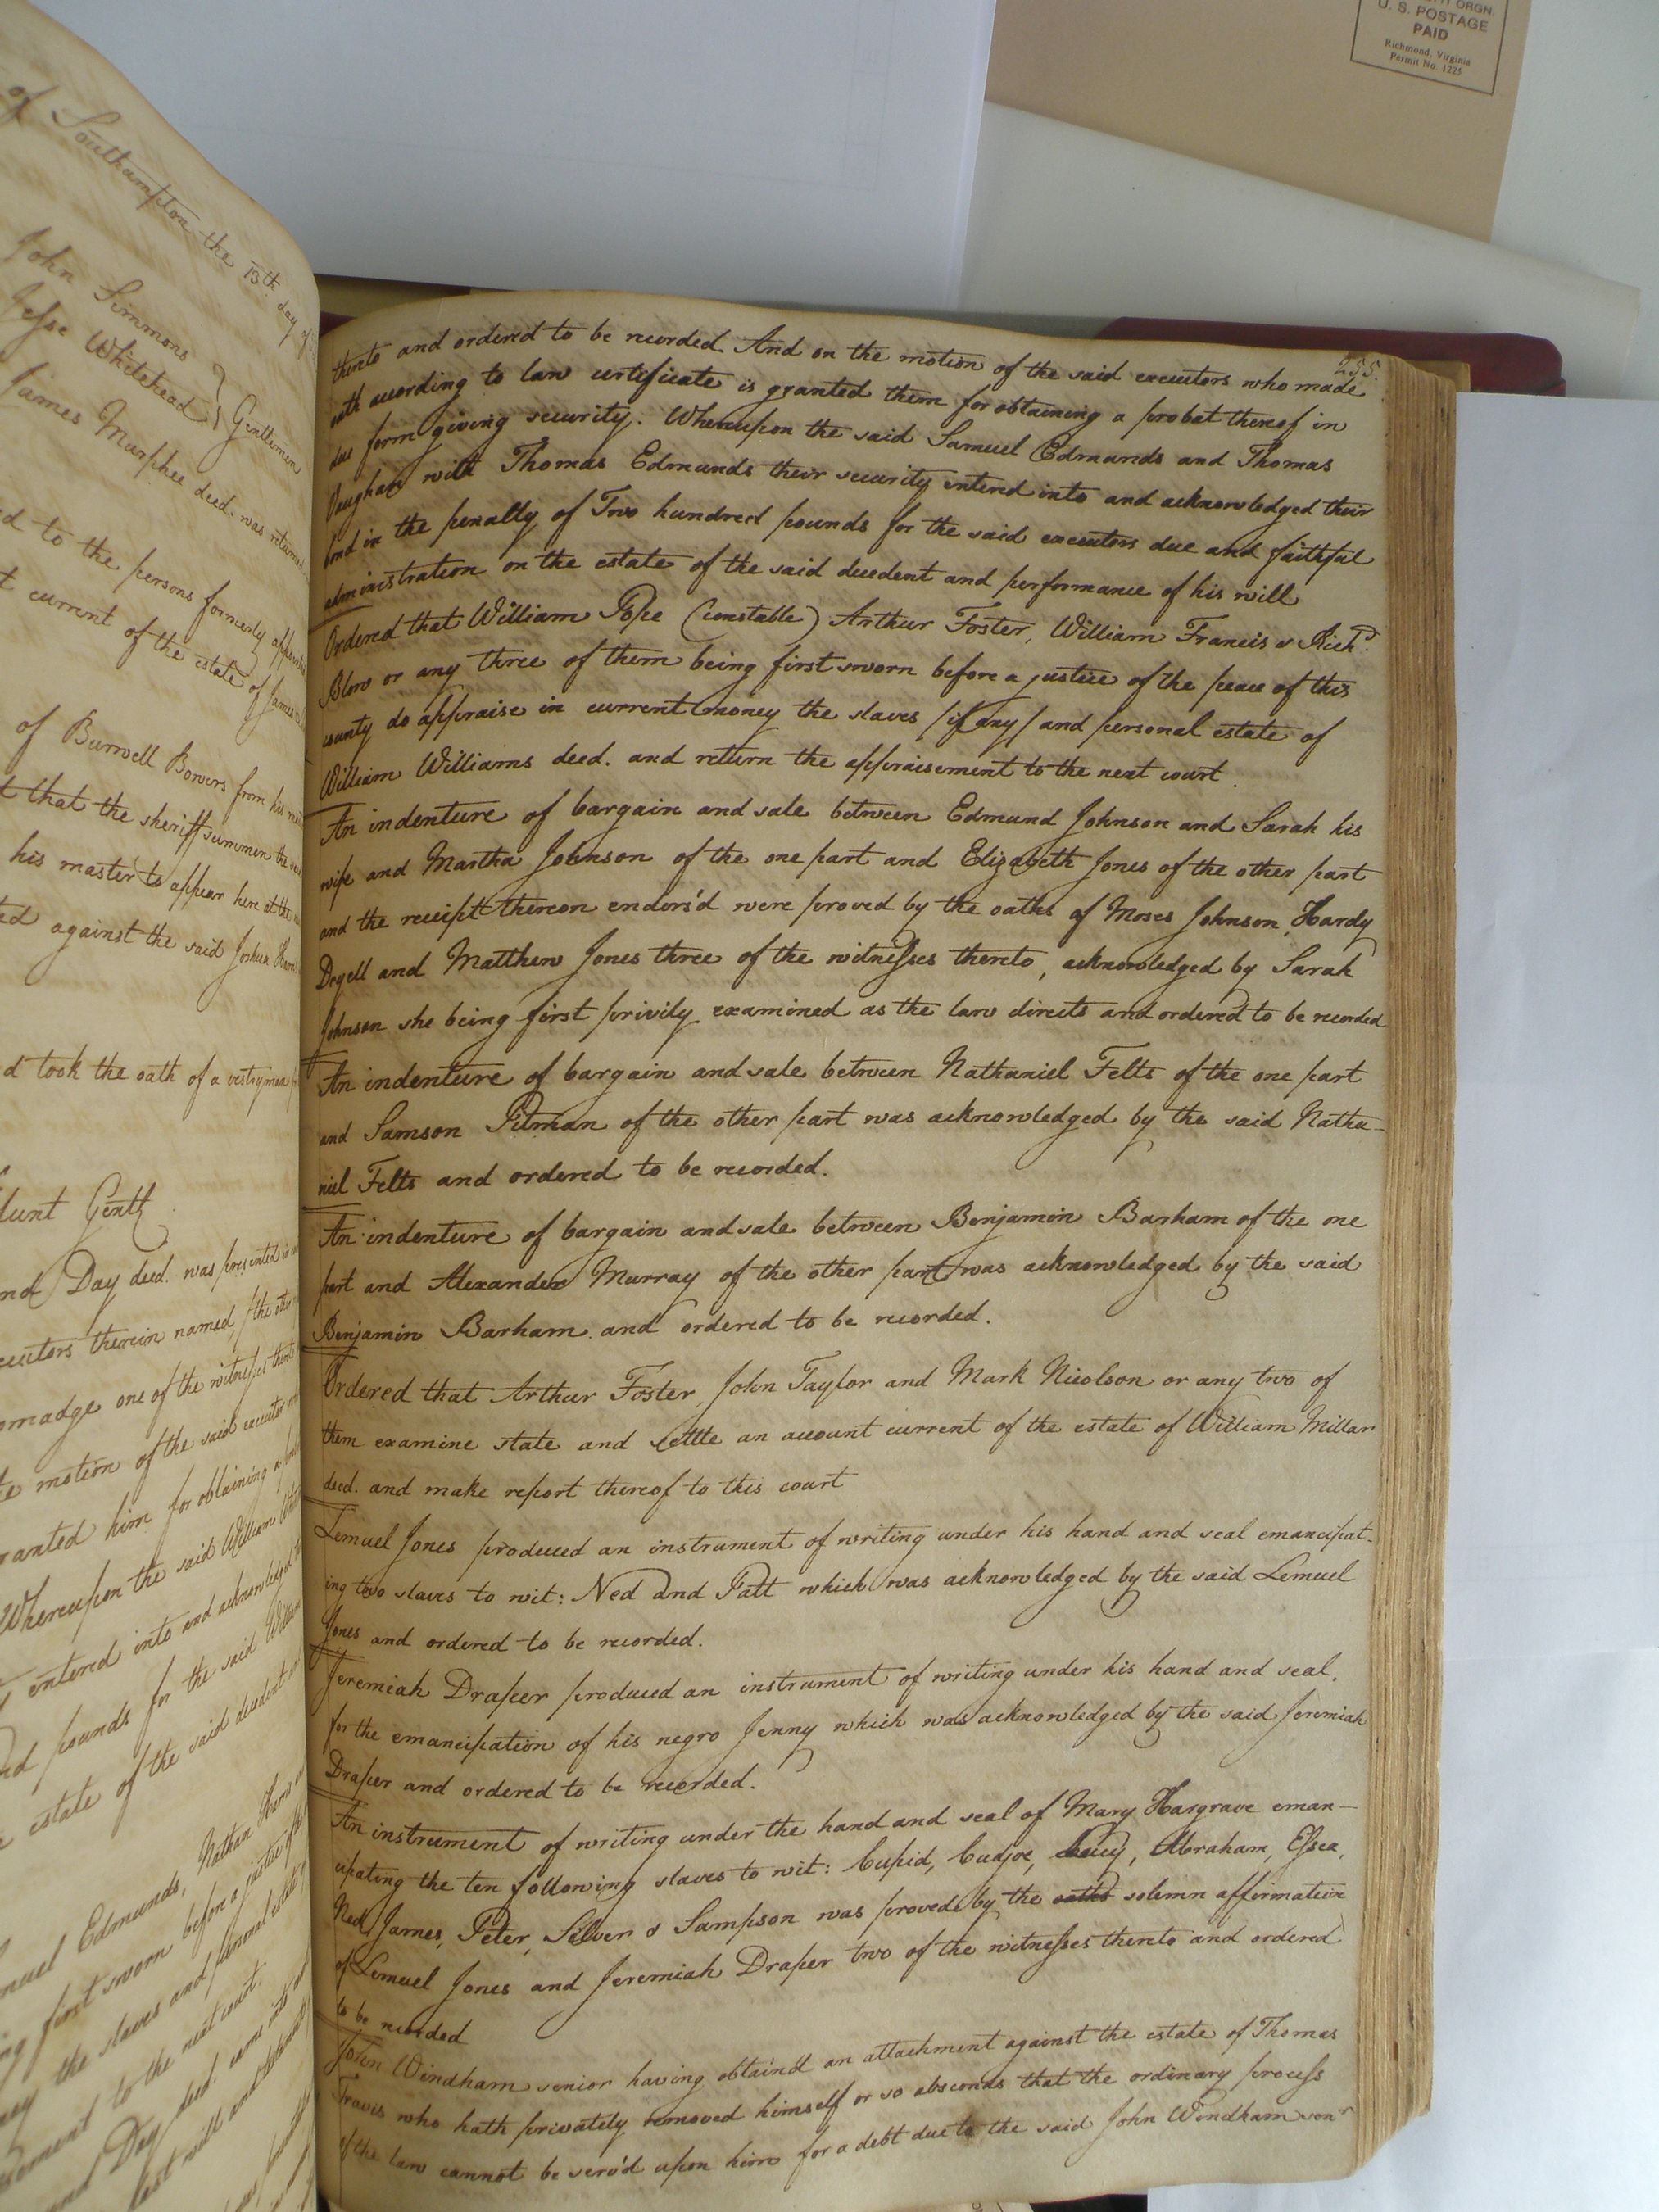 ORGN.
U. S. POSTAGE
PAID
Richmond, Virginia
Permit No. 1225
of Southampton the 13th. day of
John Simmons
Jesse Whitehead } Gentlemen
James Murphee deed. was return
ed to the persons formerly
t current of the estate of James
of Burwell Bowers from his
d that the sheriff summon the
his master to appear here at the
ted against the said Joshua
d took the oath of a vestryman
lunt Gentl
nd Day deed. was presented in
ecutors therein named, the
madge one of the witnesses
te motion of the said executor
ranted him for obtaining a
Whereupon the said William
entered into and acknowledged
nd pounds for the said William
estate of the said decedent
muel Edmunds, Nathan
ng first sworn before a justice of the
the slaves and personal estate
sement to the next court.
and Day deed. came into
last will and testament
255.
thereto and ordered to be recorded And on the motion of the said executors who made
oath according to law certificate is granted them for obtaining a probat thereof in
due form giving security. Whereupon the said Samuel Edmunds and Thomas
Vaughan with Thomas Edmunds their security entered into and acknowledged their
bond in the penalty of Two hundred pounds for the said executors due and faithful
administration on the estate of the said decedent and performance of his will
Ordered that William Pope (constable) Arthur Foster, William Francis & Richd.
Blow or any three of them being first sworn before a justice of the peace of this
county do appraise in current money the slaves /if any/ and personal estate of
William Williams deed. and return the appraisement to the next court.
An indenture of bargain and sale between Edmund Johnson and Sarah his
wife and Martha Johnson of the one part and Elizabeth Jones of the other part
and the receipt thereon endors'd were proved by the oaths of Moses Johnson, Hardy
Deyell and Matthew Jones three of the witnesses thereto, acknowledged by Sarah
Johnson she being first privily examined as the law directs and ordered to be recorded
An indenture of bargain and sale between Nathaniel Felts of the one part
and Samson Pitman of the other part was acknowledged by the said Natha-
niel Felts and ordered to be recorded.
An indenture of bargain and sale between Benjamin Barham of the one
part and Alexander Murray of the other part was acknowledged by the said
Benjamin Barham and ordered to be recorded.
Ordered that Arthur Foster, John Taylor and Mark Nicolson or any two of
them examine state and settle an account current of the estate of William Millar
deed. and make report thereof to this court
Lemuel Jones produced an instrument of writing under his hand and seal emancipat-
ing two slaves to wit: Ned and Patt which was acknowledged by the said Lemuel
Jones and ordered to be recorded.
Jeremiah Draper produced an instrument of writing under his hand and seal,
for the emancipation of his negro Jenny which was acknowledged by the said Jeremiah
Draper and ordered to be recorded.
An instrument of writing under the hand and seal of Mary Hargrave eman-
cipating the ten following slaves to wit: Cupid, Cudjoe, Lucy, Abraham, Essex,
Ned, James, Peter, Silver & Sampson was proved by the oaths solemn affirmation
of Lemuel Jones and Jeremiah Draper two of the witnesses thereto and ordered
to be recorded
John Windham senior having obtain'd an attachment against the estate of Thomas
Travis who hath privately removed himself or so absconds that the ordinary process
of the law cannot be serv'd upon him for a debt due to the said John Windham senr